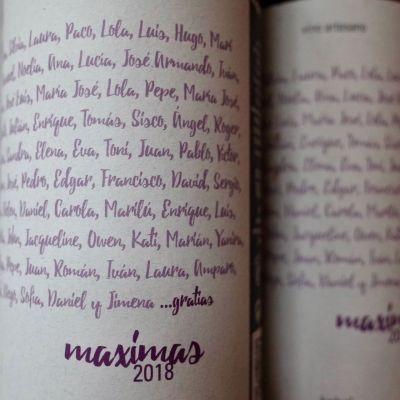 Laura, Paco, Lola, Luis, Hugo, Mari
Noelia, Ana, Lucía, José Armando, Iván,
José Luis, María José, Lola, Pepe, María José,
Julián, Enrique, Tomás, Sisco, Ángel, Roger,
Sandra, Elena, Eva, Toni, Juan, Pablo, Víctor,
José, Pedro, Edgar, Francisco, David, Sergio,
Daniel, Carola, Marilú, Enrique, Luis,
John, Jacqueline, Owen, Kati, Marián, Yanira,
Pepe, Juan, Román, Iván, Laura, Amparo,
Sofía, Daniel y Jimena ...gratias
maximas
2018
vino artesano